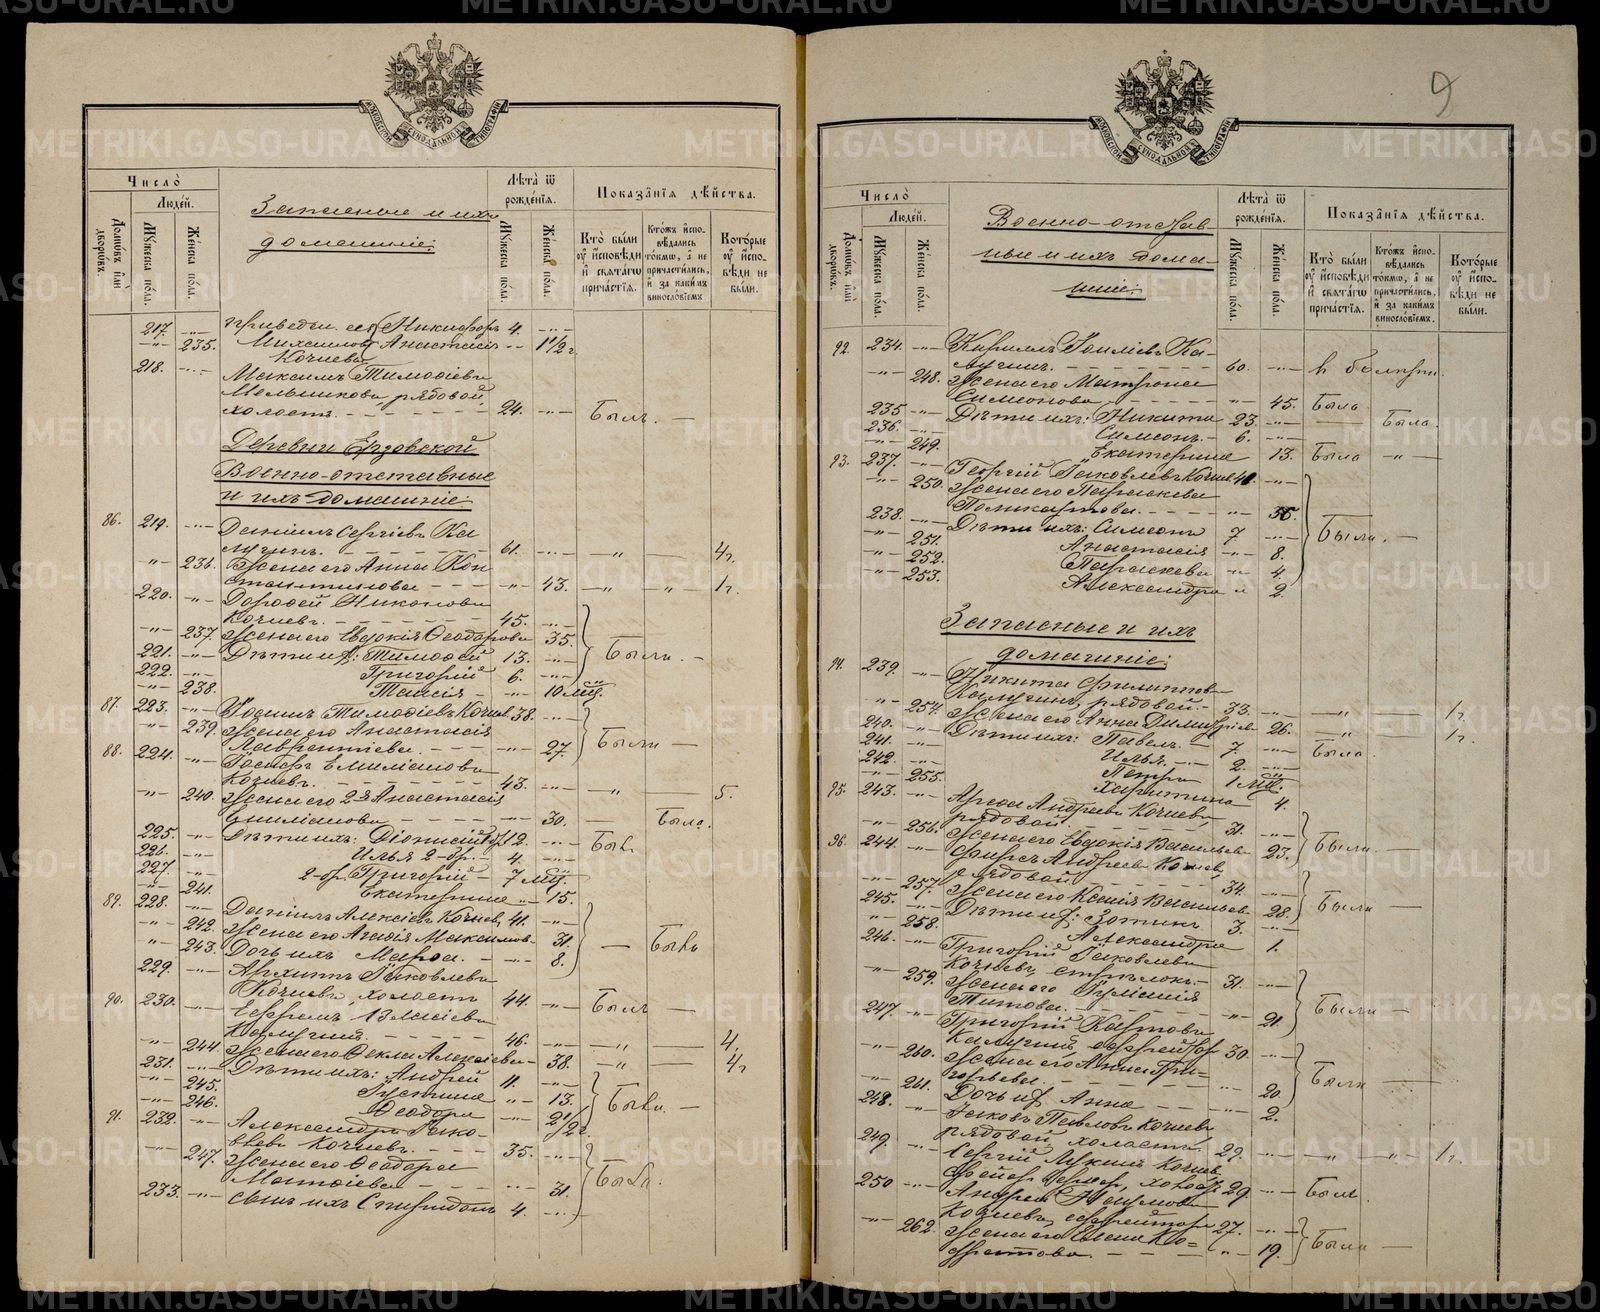 METRIKI.GASO-URAL.RU
Число̀
Людей.
Домовъ или дворовъ.
Мужеска пола.
Женска пола.
Запасные и ихъ
домашніе:
Лѣта ѿ рожденія.
Мужеска пола.
Женска пола.
Показанія дѣйства.
Кто были у исповѣди и святаго причастія.
Ктожъ исповѣдались токмо, а не причастились, и за какимъ винословіемъ.
Которые у исповѣди не были.
217. Никифоръ 4.
235. Анастасія 1 1/2 г.
Кочнева
218. Максимъ Тимофіевъ
Мельниковъ рядовой,
холостъ. 24. Былъ.
Деревни Ерзовской
Военно-отставные
и ихъ домашніе:
86. 219. Даніилъ Сергіевъ Ка
лугинъ. 61. 4 г.
236. Жена его Анна Кон
стантинова 43. 1 г.
220. Дорофей Никоновъ
Кочневъ. 45.
237. Жена его Евдокія Ѳеодорова 35.
221. Дѣти их: Тимофей 13. Были.
222. Григорій 6.
238. Таисія 10 мц.
87. 223. Тимофіевъ Кочнев 38.
239. Жена его Анастасія
Лаврентіева. 27. Были
88. 224. Іосифъ Емиліановъ
Кочневъ. 43. 5.
240. Жена его 2я Анастасія
30. Была.
225. Дѣти ихъ: Діонисій 12. Был
226. Илья 2-бр. 4.
227. 2-бр. Григорій 7 мц.
241. Екатерина 15.
89. 228. Даніилъ Алексіевъ Кочнев 41.
242. Жена его Агафія Максимов. 31. Были
243. Дочь ихъ Марѳа. 8.
229. Архиппъ Іаковлевъ
Кочневъ, холостъ 44. Былъ
90. 230. Ефремъ Власіевъ
Калугинъ. 46. 4.
244. Жена его Ѳекла Алексіева 38. 4 г
231. Дѣти ихъ: Андрей 11.
245. Іустина 13. Были.
246. Ѳеодора 2 1/2 г.
91. 232. Александръ Іако-
влевъ Кочневъ. 35.
247. Жена его Ѳеодора
Матѳіева 31. Были.
233. сынъ ихъ Спиридонъ 4.
9
Число̀
Людей.
Домовъ или дворовъ.
Мужеска пола.
Женска пола.
Военно-отстав
ные и ихъ дома-
шніе:
Лѣта ѿ рожденія.
Мужеска пола.
Женска пола.
Показанія дѣйства.
Кто были у исповѣди и святаго причастія.
Ктожъ исповѣдались токмо, а не причастились, и за какимъ винословіемъ.
Которые у исповѣди не были.
92. 234. Кириллъ Ка-
лугинъ. 60.
248. Жена его Матрона
Симеонова 45. Была
235. Дѣти ихъ: Никита 23. Была.
236. Симеонъ. 6.
249. Екатерина 13. Была
93. 237. Георгій Іаковлевъ Кочнев 41
250. Жена его Параскева
Поликарпова. 35.
238. Дѣти ихъ: Симеонъ 7 Были.
251. Анастасія 8.
252. Параскева 4.
253. Александра 2.
Запасные и ихъ
домашніе:
94. 239. Никита Филипповъ
Калугинъ, рядовой. 33. 1 г.
254. Жена его Анна Димитріев 26. 1 г.
240. Дѣти ихъ: Павелъ 7. Была.
241. Илья. 2.
242. Петръ 1 мц.
255. Харитина 4.
95. 243. Андреевъ Кочневъ,
рядовой 31.
256. Жена его Евдокія Васильев 23. Были
96. 244. Фирсъ Андреевъ Кочнев,
рядовой 34.
257. Жена его Ксенія Васильев. 28. Были
245. Дѣти их: Зотикъ 3.
258. Александра 1.
246. Григорій Іаковлевъ
Кочневъ, стрѣлокъ. 31.
259. Жена его Іуліанія
Титова. 21. Были
247. Григорій Карповъ
Калугинъ, ефрейтор 30.
260. Жена его Анисія Гри-
горьева. 20. Были
261. Дочь их Анна 2.
248. Іаковъ Павловъ Кочнев,
рядовой, холостъ 29. 1 г.
249. Сергій Лукинъ Кочнев
холост 29. Былъ.
250 Андрей Наумовъ
Кочневъ, ефрейторъ 27.
262. Жена его
19. Были